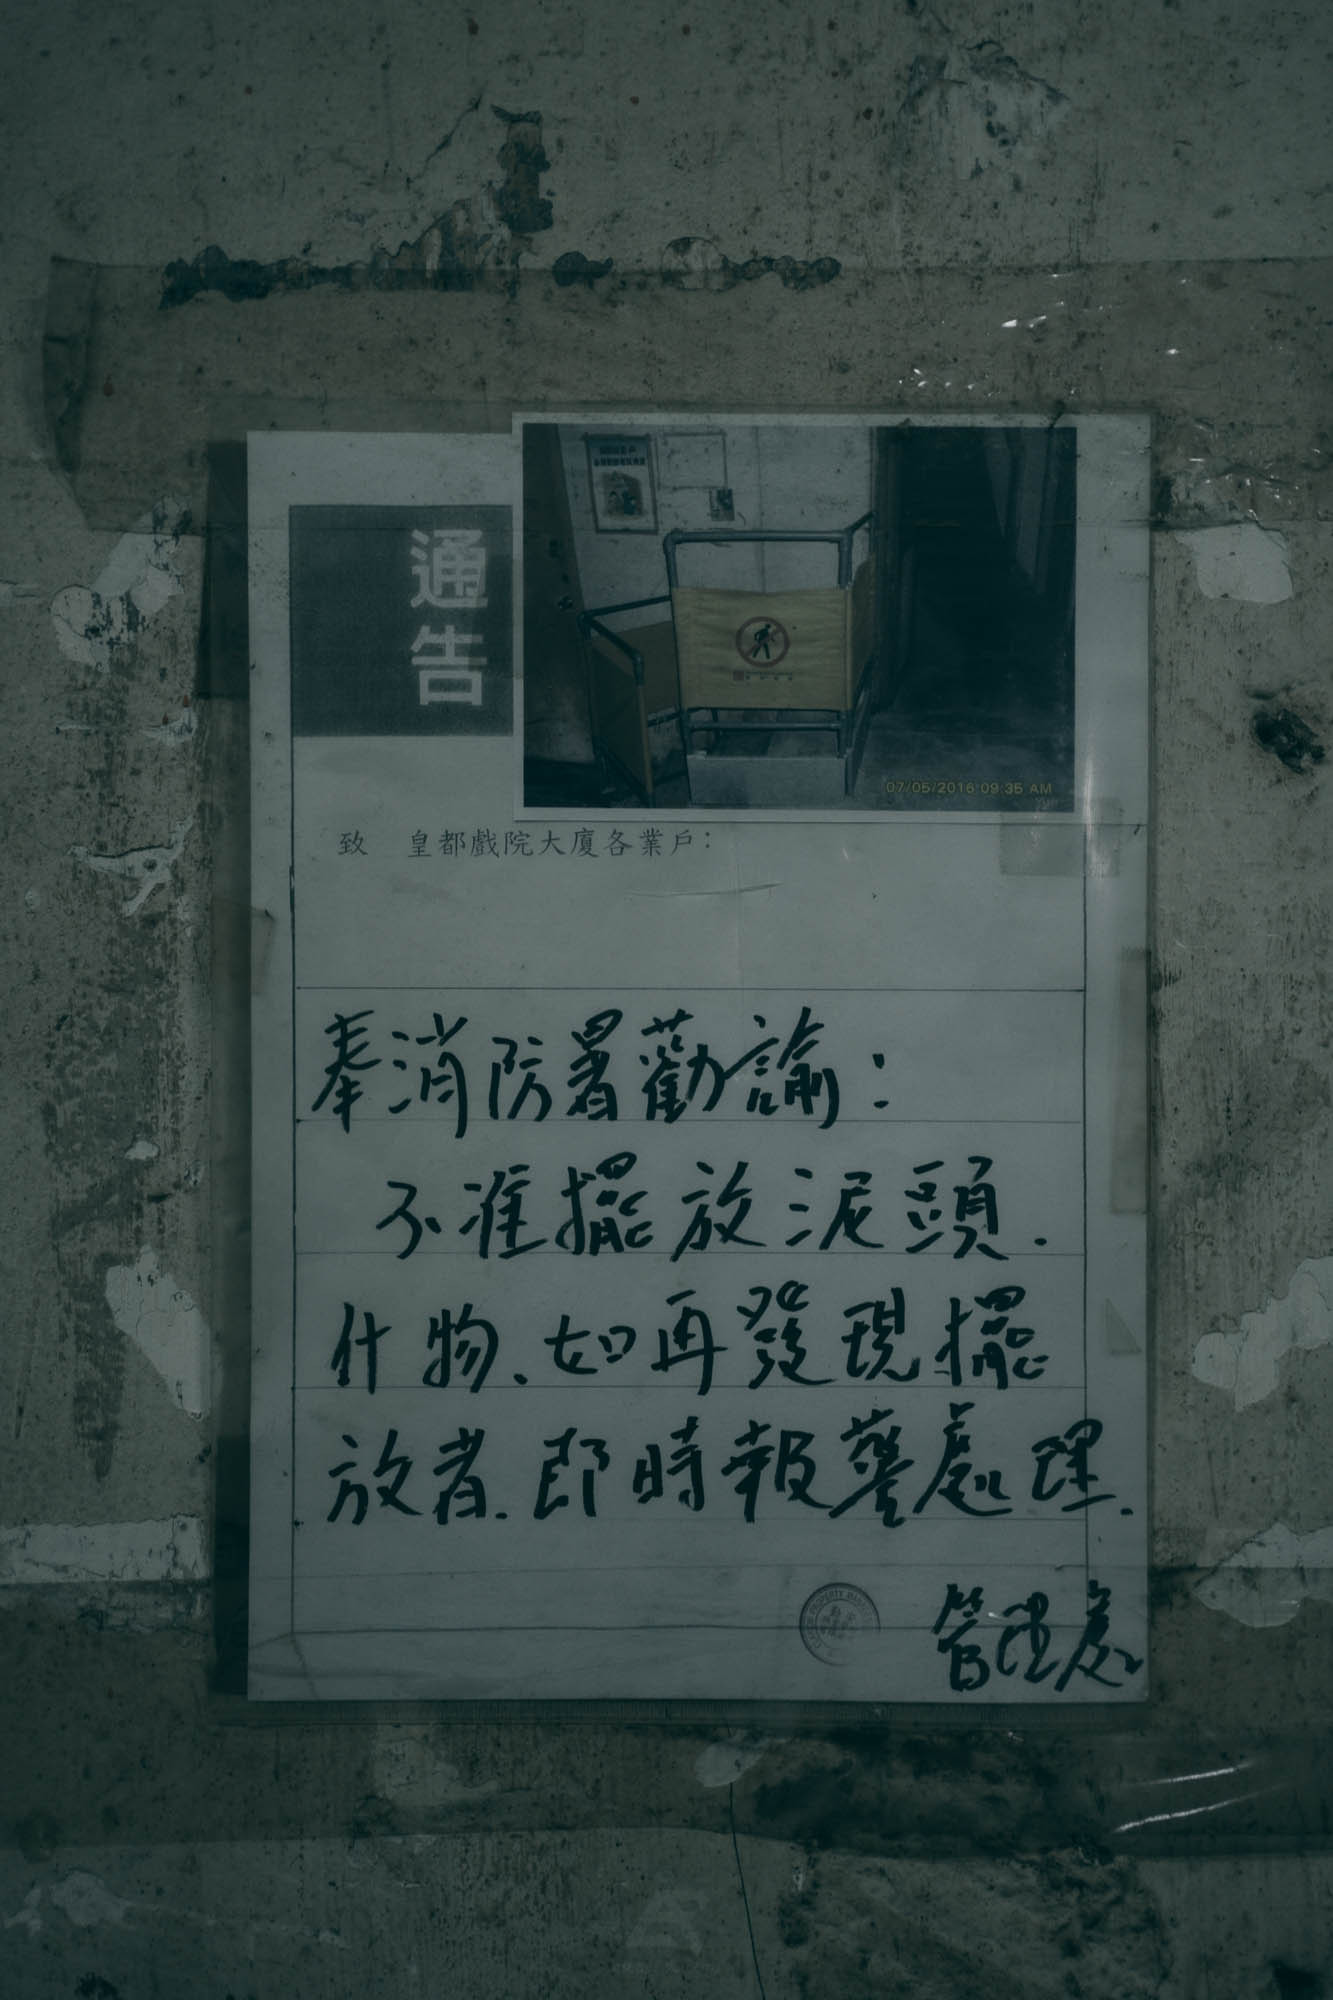 通
告
07/05/2016 09:35 AM
致　皇都戲院大廈各業戶：
奉消防署勸諭：
不准擺放泥頭.
什物、如再發現擺
放者.即時報警處理.
管理處